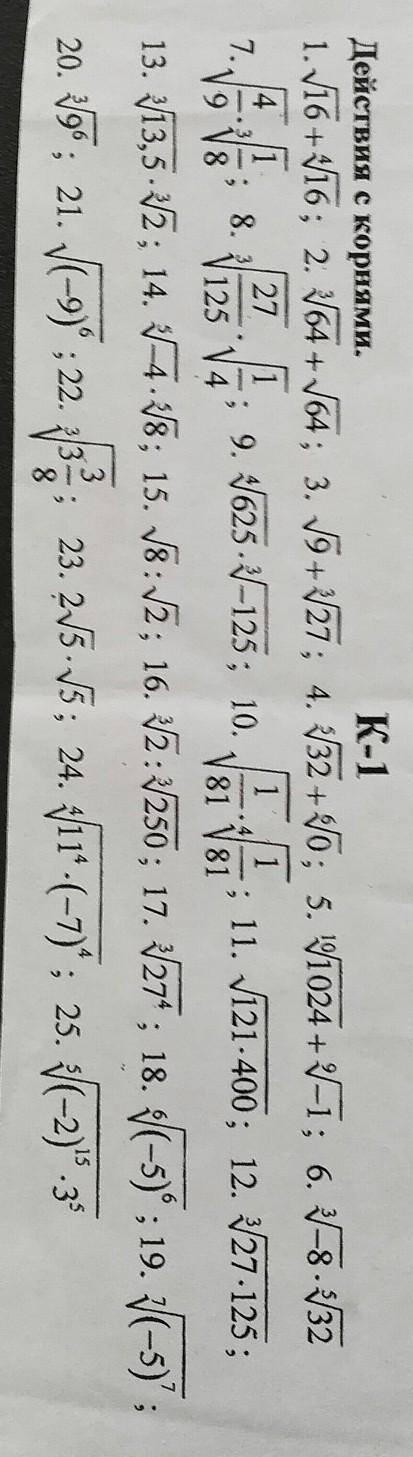 К-1
Действия с корнями.
1. √16 + ⁴√16 ; 2. ³√64 + √64 ; 3. √9 + ³√27 ; 4. ⁵√32 + ⁶√0 ; 5. ¹⁰√1024 + ⁹√−1 ; 6. ³√−8 · ⁵√32
7. √(4/9) · ³√(1/8) ; 8. ³√(27/125) · √(1/4) ; 9. ⁴√625 · ³√−125 ; 10. √(1/81) · ⁴√(1/81) ; 11. √(121·400) ; 12. ³√(27·125) ;
13. ³√13,5 · ³√2 ; 14. ⁵√−4 · ⁵√8 ; 15. √8 : √2 ; 16. ³√2 : ³√250 ; 17. ³√(27⁴) ; 18. ⁶√((−5)⁶) ; 19. ⁷√((−5)⁷) ;
20. ³√(9⁶) ; 21. √((−9)⁶) ; 22. ³√(3 3/8) ; 23. 2√5 · √5 ; 24. ⁴√(11⁴ · (−7)⁴) ; 25. ⁵√((−2)¹⁵ · 3⁵)